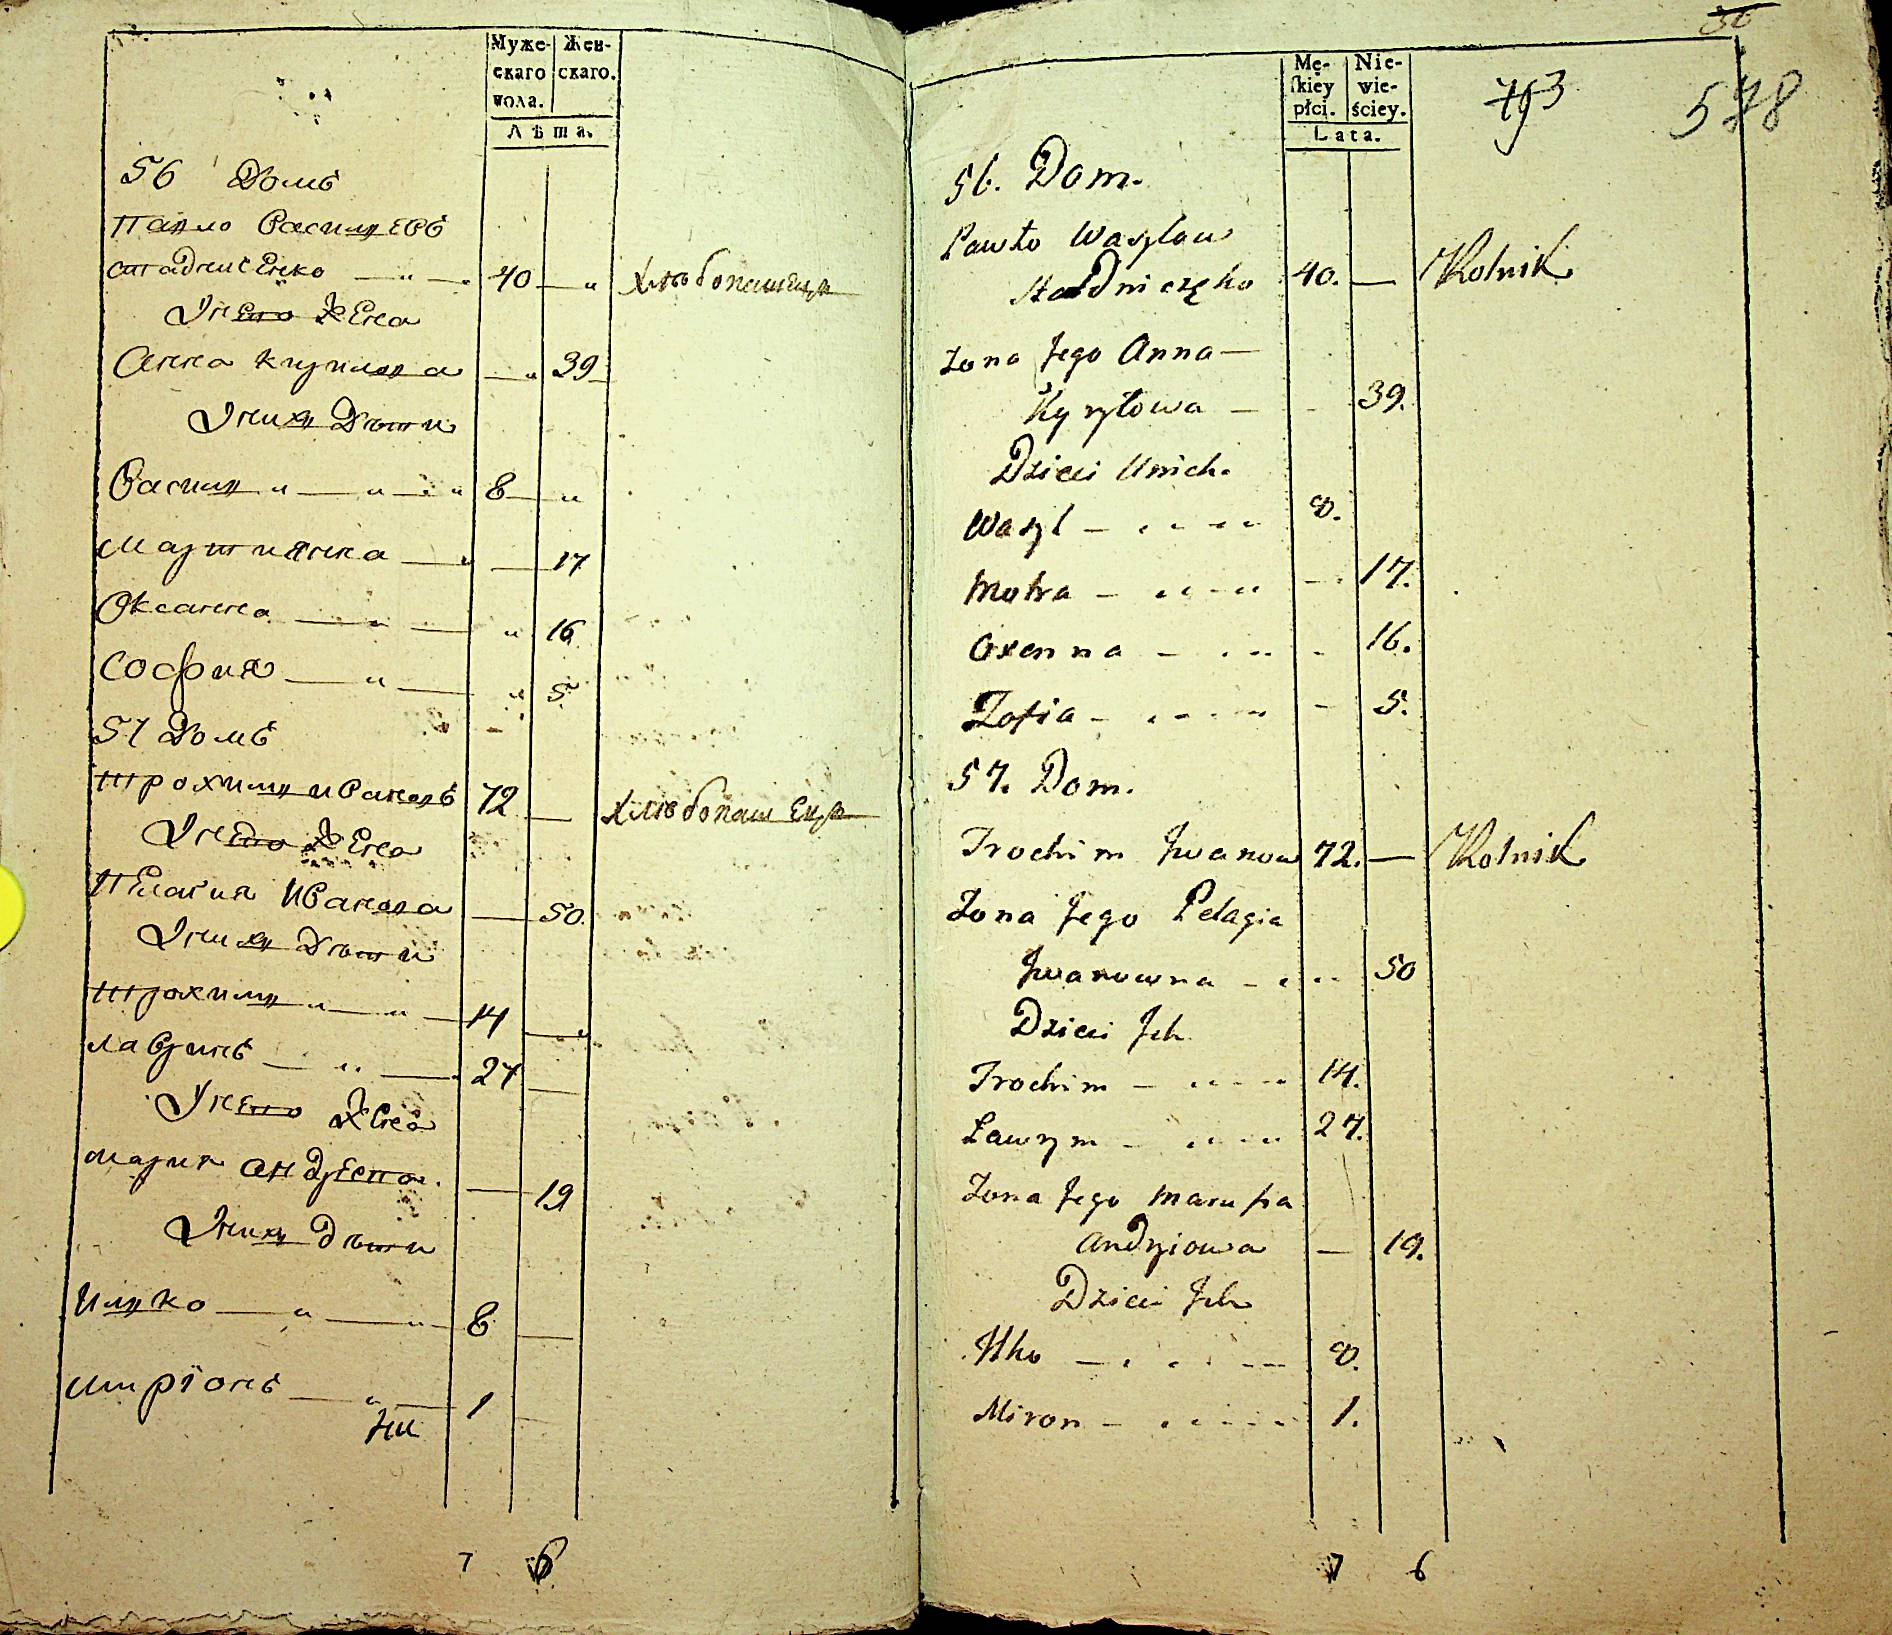 Муже-
скаго
пола.
Жен-
скаго.
Лѣта.
56 Домъ
Павло Василевъ
Стадниченко — „ — 40 — „ Хлѣбопашецъ
У него Жена
Анна Кирилова — „ 39
У нихъ Дѣти
Василь „ — „ — „ 8 — „
Мартиянна — „ — 17
Оксанна — „ — „ 16
София — „ — „ 5
57 Домъ
Трохимъ Ивановъ 72 — Хлѣбопашецъ
У него Жена
Пелагия Иванова — 50.
У нихъ Дѣти
Трохимъ „ — „ — 14 — „
Лавринъ — „ — 27 —
У него Жена
Мария Андреева. — 19
У нихъ Дѣти
Илько — „ — „ — 8 —
Миріонъ — „ — 1
Ни
7 6
Mę-
skiey
płci.
Nie-
wie-
ściey.
Lata.
793
578
56. Dom.
Pawło Wasylow
Stadniczęko 40. — Rolnik
Żona Jego Anna —
Kyryłowa — - 39.
Dzieci Unich.
Wasyl — 8.
Motra — 17.
Oxenna — 16.
Zofia — 5.
57. Dom.
Trochim Jwanow 72. — Rolnik
Żona Jego Pelagia
Jwanowna — 50
Dzieci Jch
Trochim — 14.
Ławrym — 27.
Żona Jego Marusia
Andryiowa — 19.
Dzieci Jch
Ilko — 8.
Miron — 1.
7 6